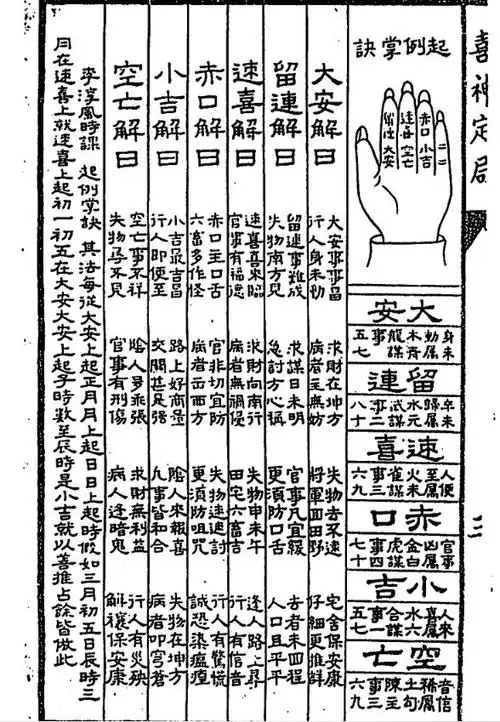 喜神定局
二
起例掌訣
赤口 小吉
速喜 空亡
留連 大安
大安
身未動屬木青龍謀事一五七
留連
卒未歸屬水元武謀事二八十
速喜
人便至屬火朱雀謀事三六九
赤口
官事凶屬金白虎謀事四七十
小吉
人來喜屬水六合謀事一五七
空亡
音信稀屬土勾陳主事三六九
大安解曰
大安事事昌 求財在坤方 失物去不遠 宅舍保安康
行人身未動 病者主無妨 將軍回田野 仔細更推詳
留連解曰
留連事難成 求謀日未明 官事凡宜緩 去者未回程
失物南方見 急討方心稱 更須防口舌 人口且平平
速喜解曰
速喜喜來臨 求財向南行 失物申未午 逢人路上尋
官事有福德 病者無禍侵 田宅六畜吉 行人有信音
赤口解曰
赤口主口舌 官非切宜防 失物速速討 行人有驚慌
六畜多作怪 病者出西方 更須防咀咒 誠恐染瘟
小吉解曰
小吉最吉昌 路上好商量 陰人來報喜 失物在坤方
行人即便至 交關甚是强 凡事皆和合 病者叩穹蒼
空亡解曰
空亡事不祥 陰人多乖張 求財無利益 行人有災殃
失物尋不見 官事有刑傷 病人逢暗鬼 解禳保安康
李淳風時課 起例掌訣 其法每從大安上起正月月上起日日上起時假如三月初五日辰時三
月在速喜上就速喜上起初一初五在大安大安上起子時數至辰時是小吉就以善推占餘皆倣此